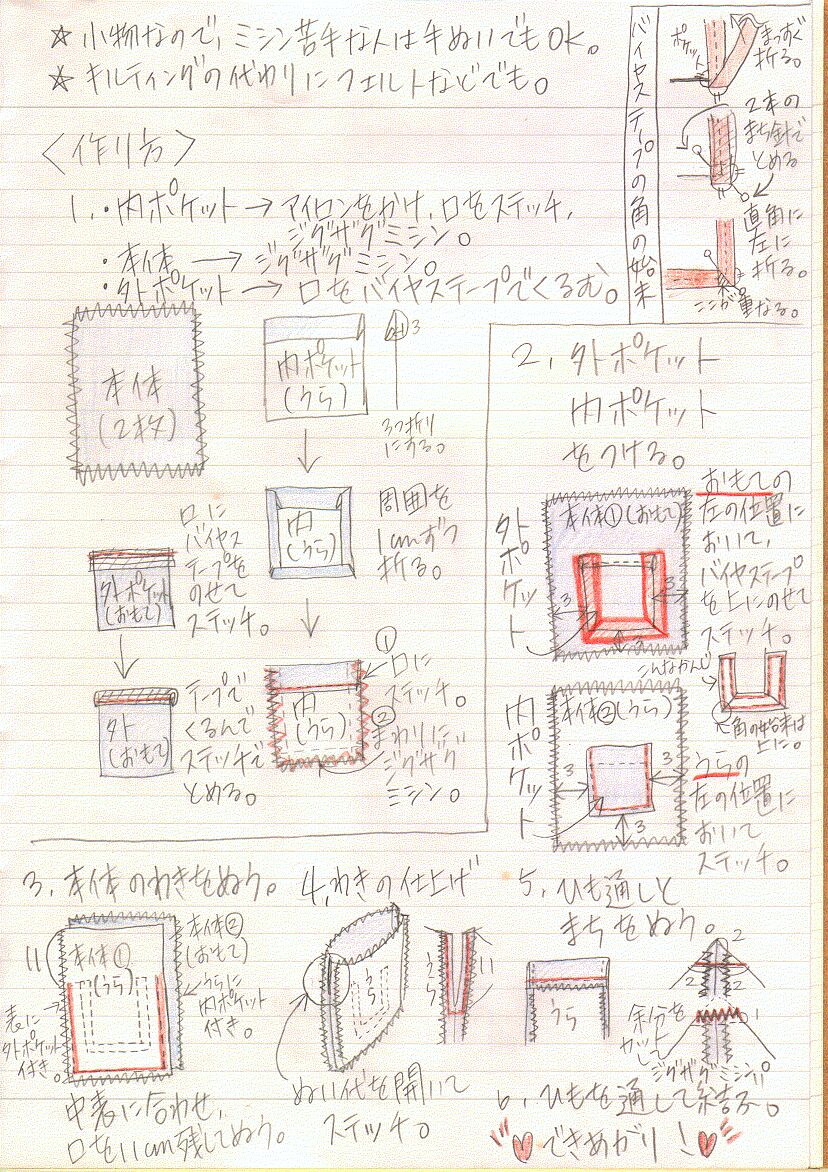 ☆ 小物なので、ミシン苦手な人は手ぬいでもOK。
☆ キルティングの代わりにフェルトなどでも。
バイヤステープの角の始末
ポケット
まっすぐ
折る。
2本の
まち針で
とめる
直角に
左に
折る。
ここが
重なる。
〈作り方〉
1.・内ポケット→アイロンをかけ、口をステッチ,
ジグザグミシン。
・本体→ジグザグミシン。
・外ポケット→口をバイヤステープでくるむ。
本体
(2枚)
内ポケット
(うら)
3
3つ折り
にする。
内
(うら)
周囲を
1cmずつ
折る。
口に
バイヤス
テープを
のせて
ステッチ。
外ポケット
(おもて)
外
(おもて)
テープで
くるんで
ステッチで
とめる。
内
(うら)
①
口に
ステッチ。
②
まわりに
ジグザグ
ミシン。
2,外ポケット
内ポケット
をつける。
外ポケット
本体①(おもて)
3
3
3
おもての
左の位置に
おいて,
バイヤステープ
を上にのせて
ステッチ。
こんなかんじ
角の始末は
上に。
内ポケット
本体②(うら)
3
3
3
うらの
左の位置に
おいて
ステッチ。
3,本体のわきをぬう。
11
本体①
(うら)
本体②
(おもて)
うらに
内ポケット
付き。
表に
外ポケット
付き
中表に合わせ,
口を11cm残してぬう。
4,わきの仕上げ
うら
うら
11
ぬい代を開いて
ステッチ。
5,ひも通しと
まちをぬう。
うら
2
2
2
1
余分を
カットして
ジグザグミシン!!
6,ひもを通して結ぶ。
できあがり!